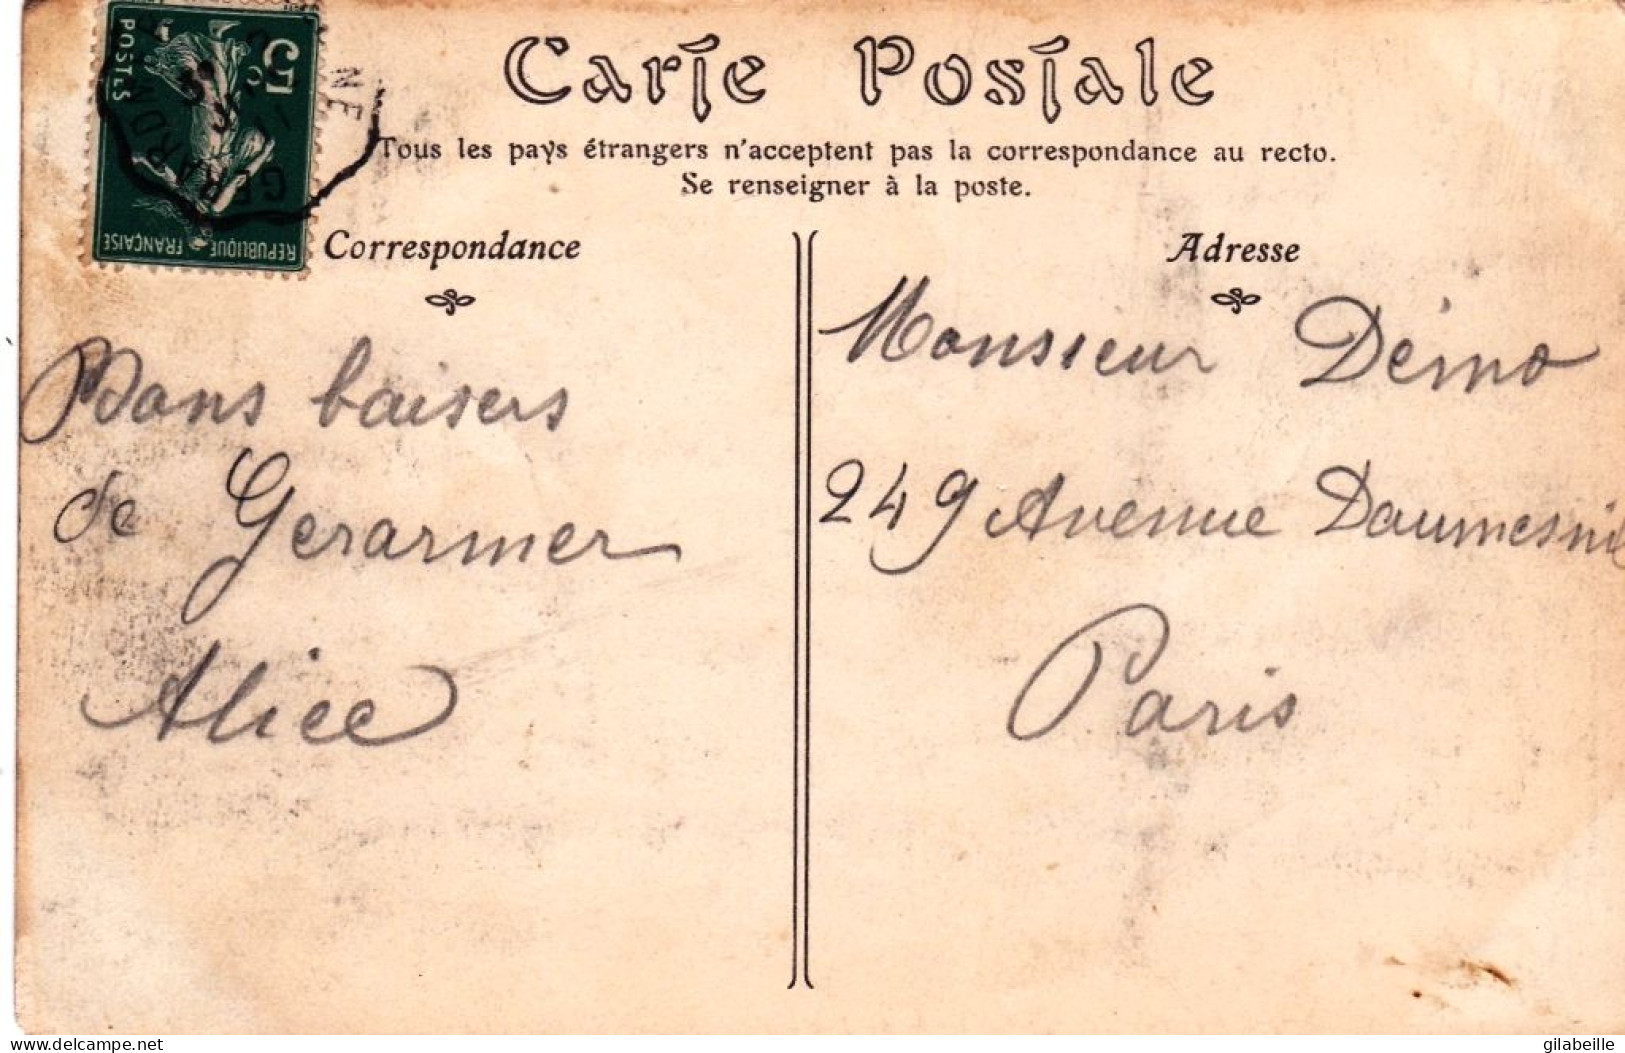 Carte Postale
Tous les pays étrangers n'acceptent pas la correspondance au recto.
Se renseigner à la poste.
5 c
POSTES
REPUBLIQUE FRANÇAISE
GERARDM
NE
Correspondance
Bons baisers
de Gerarmer
Alice
Adresse
Monsieur Démo
249 Avenue Daumesnil
Paris
delcampe.net
gilabeille